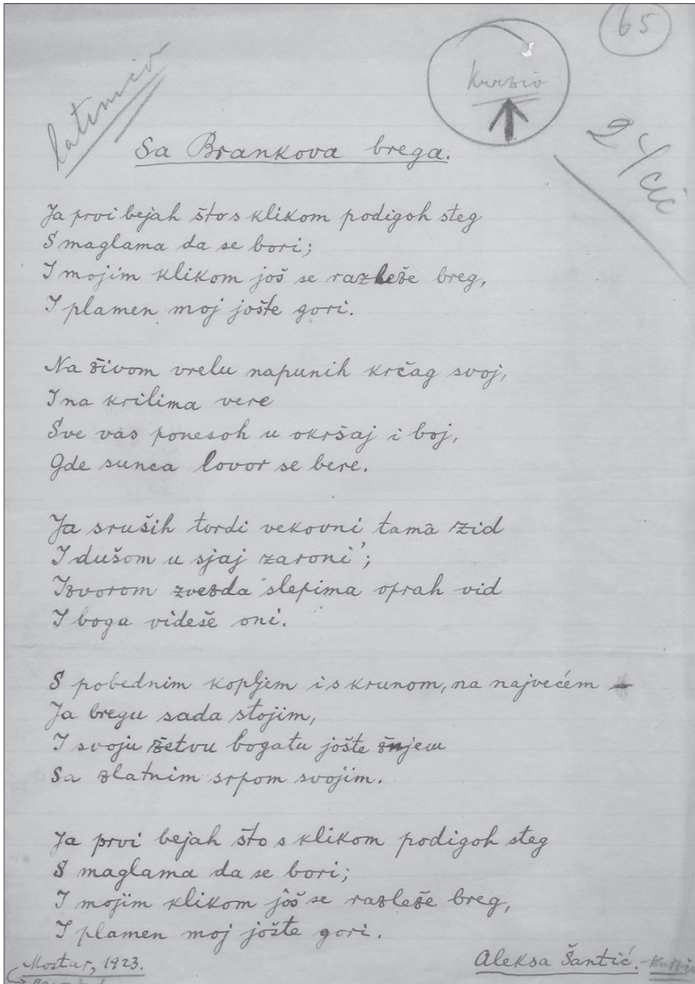 65
latinica
Kurziv
24 cic
Sa Brankova brega.
Ja prvi bejah što s klikom podigoh steg
S maglama da se bori;
I mojim klikom još se razleže breg,
I plamen moj jošte gori.
Na živom vrelu napunih krčag svoj,
I na krilima vere
Sve vas ponesoh u okršaj i boj,
Gde sunca lovor se bere.
Ja sruših tvrdi vekovni tamâ zid
I dušom u sjaj zaroni';
Izvorom zvezda slepima oprah vid
I boga videše oni.
S pobednim kopljem i s krunom, na najvećem
Ja bregu sada stojim,
I svoju žetvu bogatu jošte žnjem
Sa zlatnim srpom svojim.
Ja prvi bejah što s klikom podigoh steg
S maglama da se bori;
I mojim klikom jôš se razleže breg,
I plamen moj jošte gori.
Mostar, 1923.
Aleksa Šantić. - Kurziv